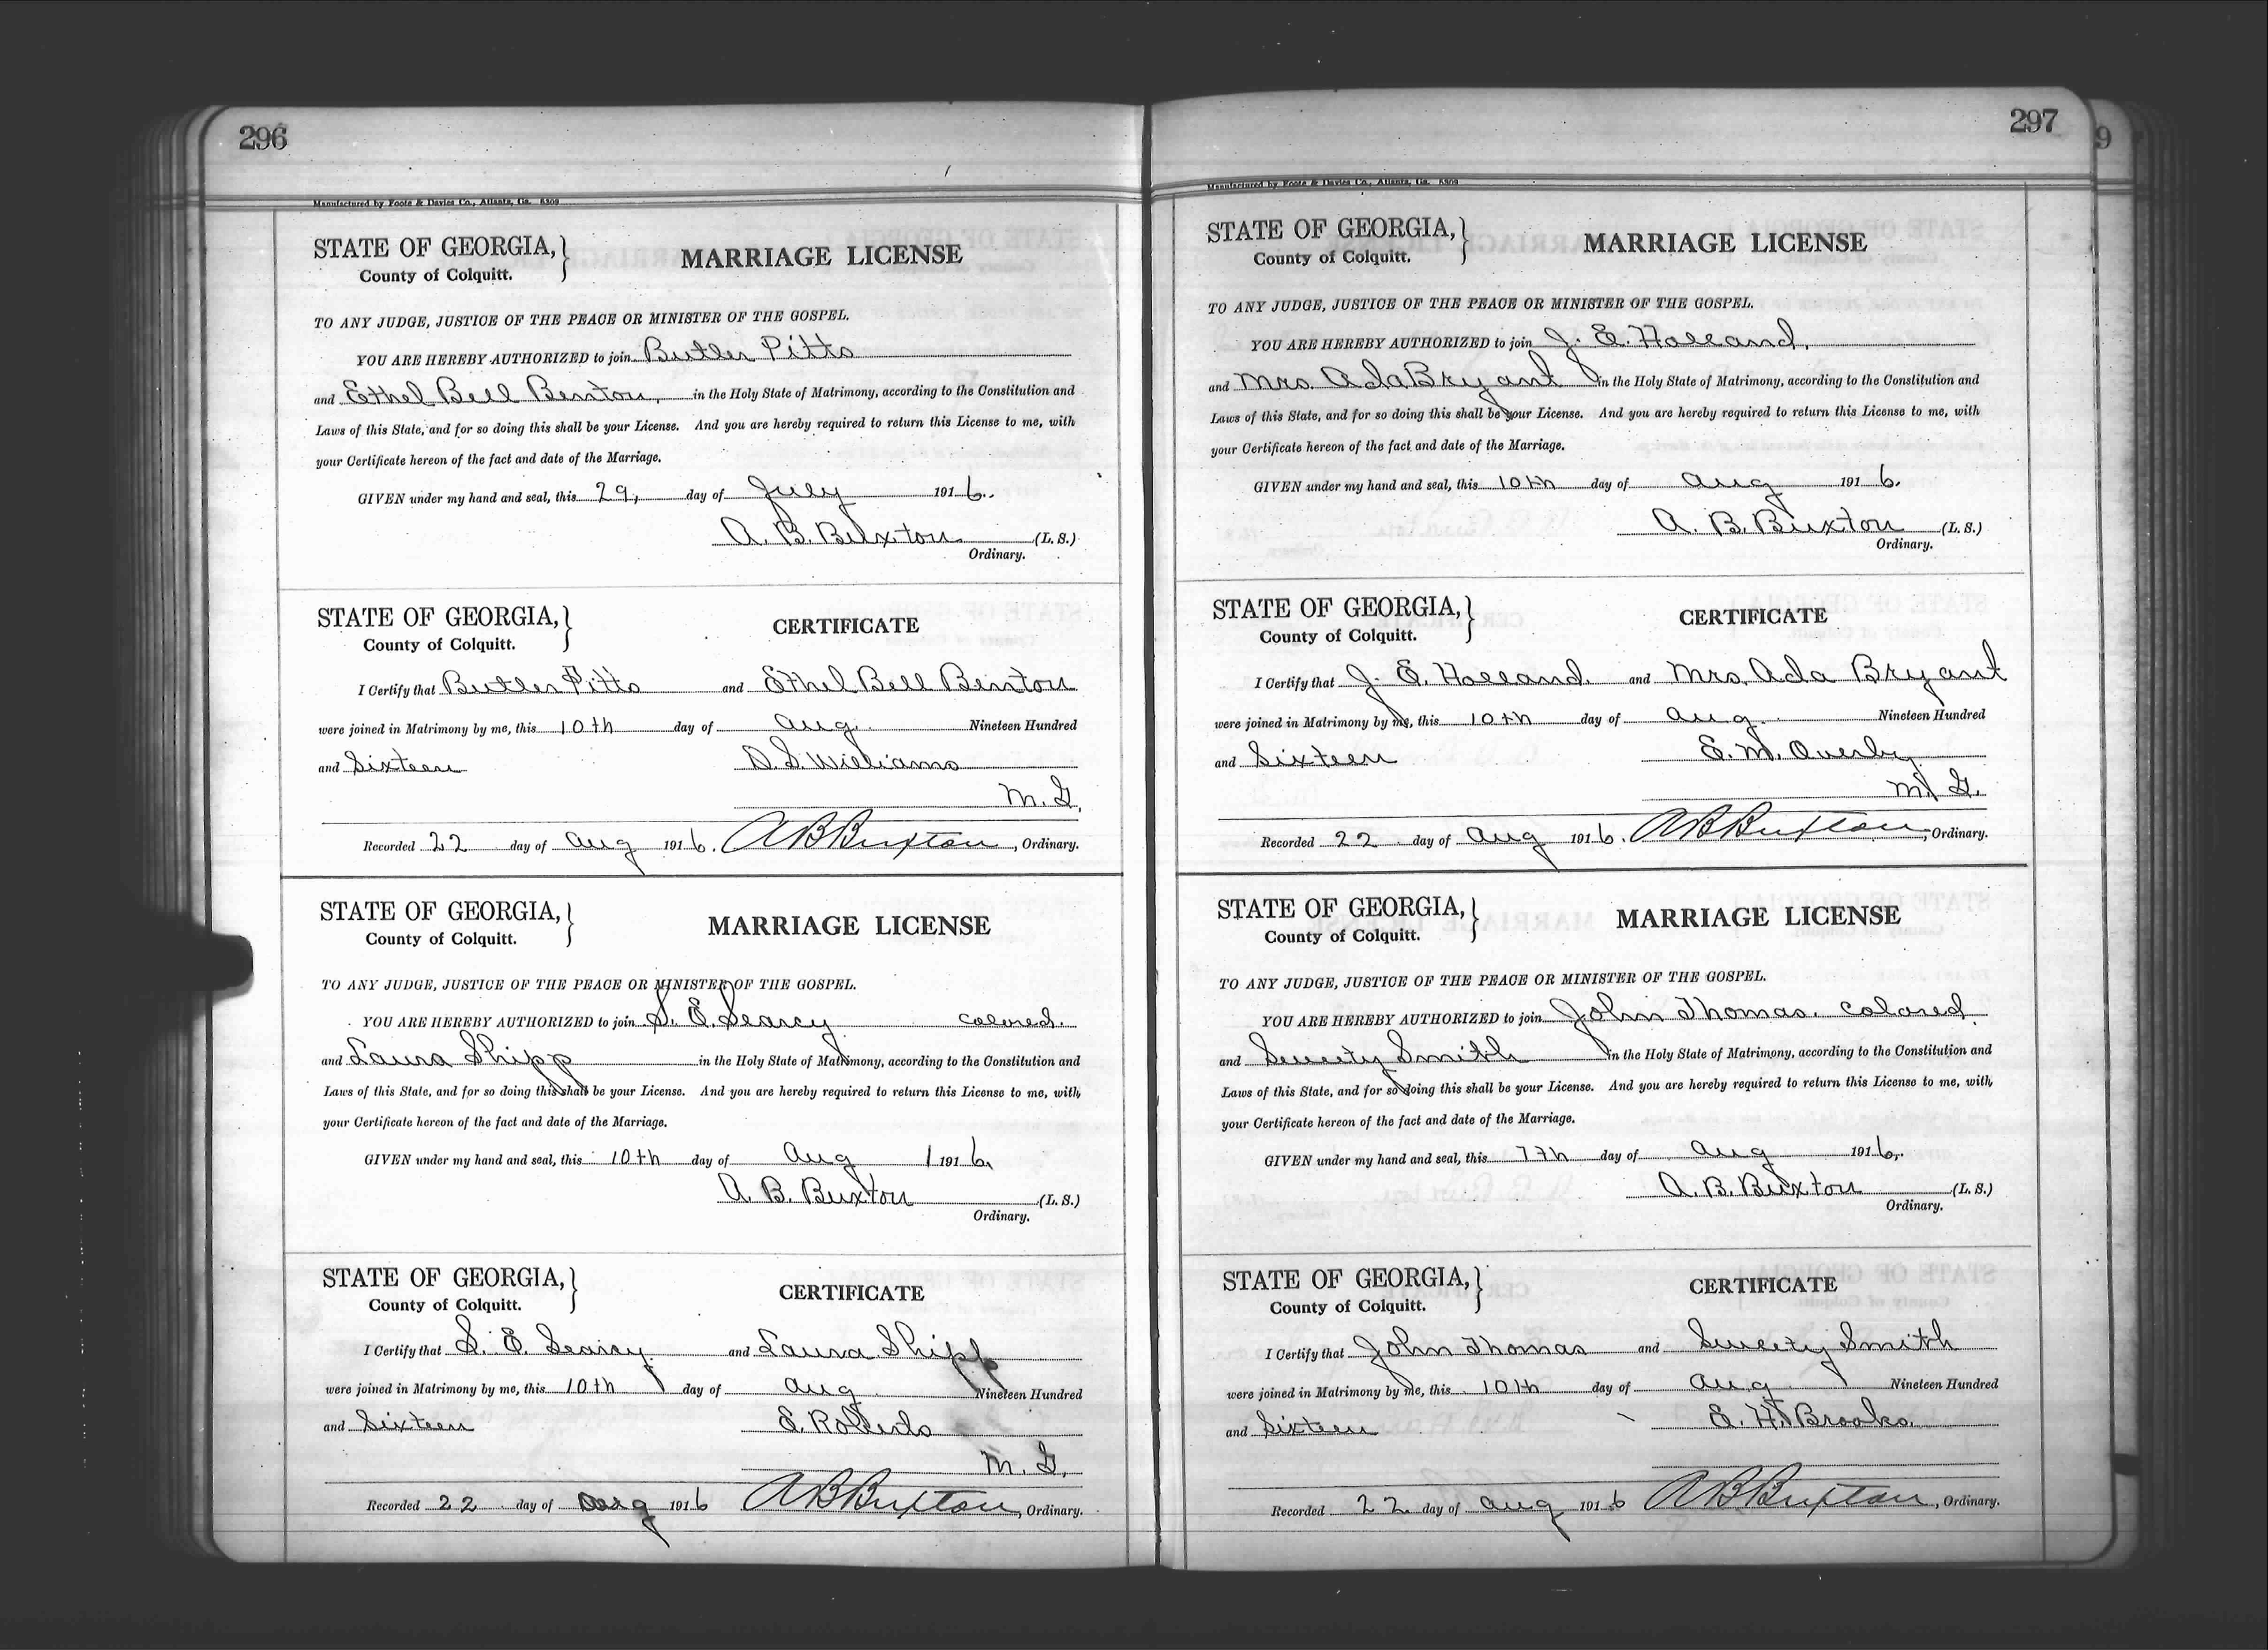 296
Manufactured by Foote & Davies Co., Atlanta, Ga. 5309
STATE OF GEORGIA,
County of Colquitt.
MARRIAGE LICENSE
TO ANY JUDGE, JUSTICE OF THE PEACE OR MINISTER OF THE GOSPEL.
YOU ARE HEREBY AUTHORIZED to join Butler Pitts
and Ethel Bell Benton, in the Holy State of Matrimony, according to the Constitution and
Laws of this State, and for so doing this shall be your License. And you are hereby required to return this License to me, with
your Certificate hereon of the fact and date of the Marriage.
GIVEN under my hand and seal, this 29, day of July 1916.
A. B. Buxton (L. S.)
Ordinary.
STATE OF GEORGIA,
County of Colquitt.
CERTIFICATE
I Certify that Butler Pitts and Ethel Bell Benton
were joined in Matrimony by me, this 10th day of Aug. Nineteen Hundred
and Sixteen D. S. Williams
M. G.
Recorded 22 day of Aug 1916. A B Buxton, Ordinary.
STATE OF GEORGIA,
County of Colquitt.
MARRIAGE LICENSE
TO ANY JUDGE, JUSTICE OF THE PEACE OR MINISTER OF THE GOSPEL.
YOU ARE HEREBY AUTHORIZED to join S. E. Searcy colored.
and Laura Shipp in the Holy State of Matrimony, according to the Constitution and
Laws of this State, and for so doing this shall be your License. And you are hereby required to return this License to me, with
your Certificate hereon of the fact and date of the Marriage.
GIVEN under my hand and seal, this 10th day of Aug 1916.
A. B. Buxton (L. S.)
Ordinary.
STATE OF GEORGIA,
County of Colquitt.
CERTIFICATE
I Certify that S. E. Searcy and Laura Shipp
were joined in Matrimony by me, this 10th day of Aug Nineteen Hundred
and Sixteen E. Roberts
M. G.
Recorded 22 day of Aug 1916 A B Buxton, Ordinary.
297
9
Manufactured by Foote & Davies Co., Atlanta, Ga. 5309
STATE OF GEORGIA,
County of Colquitt.
MARRIAGE LICENSE
TO ANY JUDGE, JUSTICE OF THE PEACE OR MINISTER OF THE GOSPEL.
YOU ARE HEREBY AUTHORIZED to join J. E. Holland.
and Mrs. Ada Bryant in the Holy State of Matrimony, according to the Constitution and
Laws of this State, and for so doing this shall be your License. And you are hereby required to return this License to me, with
your Certificate hereon of the fact and date of the Marriage.
GIVEN under my hand and seal, this 10th day of Aug 1916.
A. B. Buxton (L. S.)
Ordinary.
STATE OF GEORGIA,
County of Colquitt.
CERTIFICATE
I Certify that J. E. Holland. and Mrs. Ada Bryant
were joined in Matrimony by me, this 10th day of Aug. Nineteen Hundred
and Sixteen E. M. Overby
M. G.
Recorded 22 day of Aug 1916. A B Buxton, Ordinary.
STATE OF GEORGIA,
County of Colquitt.
MARRIAGE LICENSE
TO ANY JUDGE, JUSTICE OF THE PEACE OR MINISTER OF THE GOSPEL.
YOU ARE HEREBY AUTHORIZED to join John Thomas. Colored.
and Sweety Smith in the Holy State of Matrimony, according to the Constitution and
Laws of this State, and for so doing this shall be your License. And you are hereby required to return this License to me, with
your Certificate hereon of the fact and date of the Marriage.
GIVEN under my hand and seal, this 7th day of Aug 1916.
A. B. Buxton (L. S.)
Ordinary.
STATE OF GEORGIA,
County of Colquitt.
CERTIFICATE
I Certify that John Thomas and Sweety Smith
were joined in Matrimony by me, this 10th day of Aug Nineteen Hundred
and Sixteen E. H. Brooks.
Recorded 22 day of Aug 1916 A B Buxton, Ordinary.